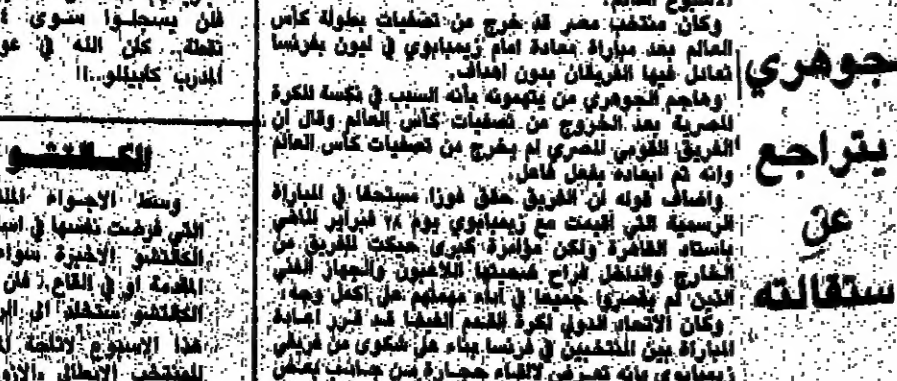 جوهري
يتراجع
عن
ستقالته
الاسبوع القادم.
وكان منتخب مصر قد خرج من تصفيات بطولة كأس
العالم بعد مباراة معادة امام زيمبابوي في ليون بفرنسا
تعادل فيها الفريقان بدون اهداف.
وهاجم الجوهري من يتهمونه بأنه السبب في نكسة الكرة
المصرية بعد الخروج من تصفيات كأس العالم وقال ان
الفريق القومي المصري لم يخرج من تصفيات كأس العالم
وانه تم ابعاده بفعل فاعل.
واضاف قوله ان الفريق حقق فوزا مستحقا في المباراة
الرسمية التي اقيمت مع زيمبابوي يوم ٢٨ فبراير الماضي
باستاد القاهرة ولكن مؤامرة كبرى حيكت للفريق من
الخارج والداخل فراح ضحيتها اللاعبون والجهاز الفني
الذين لم يقصروا جميعا في اداء مهمتهم على اكمل وجه.
وكان الاتحاد الدولي لكرة القدم الفيفا قد قرر اعادة
المباراة بين المنتخبين في فرنسا بناء على شكوى من فريق
زيمبابوي بانه تعرض لالقاء حجارة من جانب بعض
فلن يسجلوا سوى ٤
نقطة.. كان الله في عو
المدرب كابيللو..!!
الكالتشو
وسط الاجواء
التي فرضت نفسها في
الكالتشو الاخيرة سواء
المقدمة او في القاع، فان
الكالتشو ستخلد الى
هذا الاسبوع لاتاحة
للمنتخب الايطالي